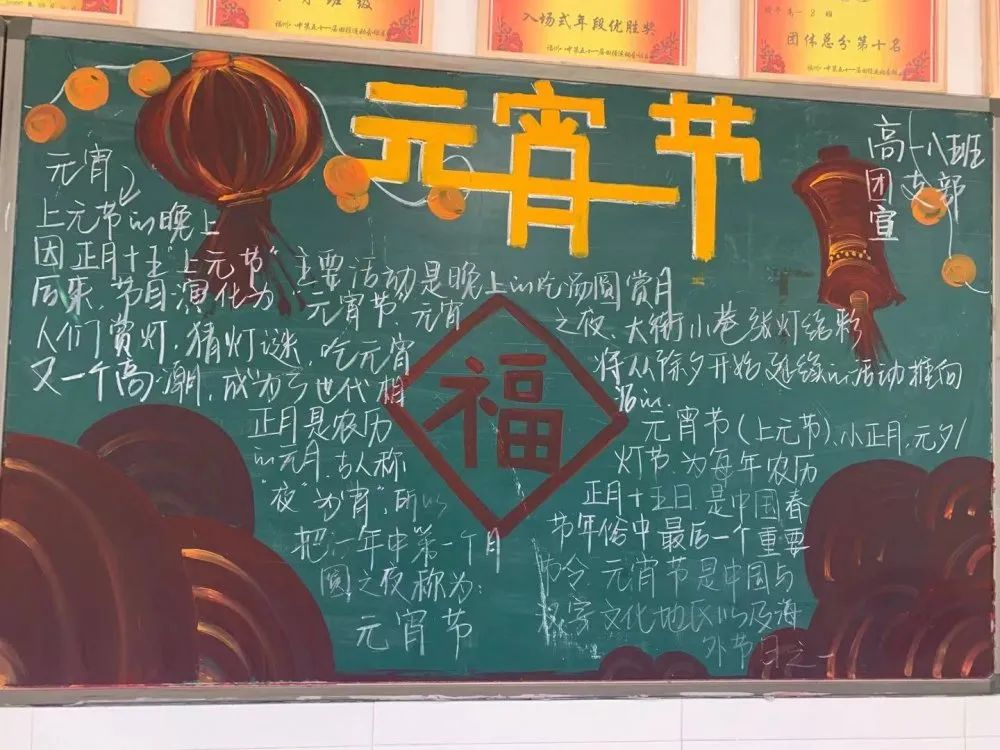 入场式年段优胜奖
福州八中第五十一届田径运动会组委会
团体总分第十名
元宵节
高一八班
团支部
宣
元宵
上元节的晚上
因正月十五"上元节"主要活动是晚上的吃汤圆赏月
后来,节日演化为"元宵节"元宵
之夜,大街小巷张灯结彩
人们赏灯,猜灯谜,吃元宵
将从除夕开始延续的活动推向
又一个高潮,成为了世代相
沿的
福
正月是农历
的元月,古人称
"夜"为"宵",所以
把一年中第一个月
圆之夜称为:
元宵节
元宵节(上元节),小正月,元夕/
灯节,为每年农历
正月十五日,是中国春
节年俗中最后一个重要
节令,元宵节是中国与
文化地区以及海
外节日之一